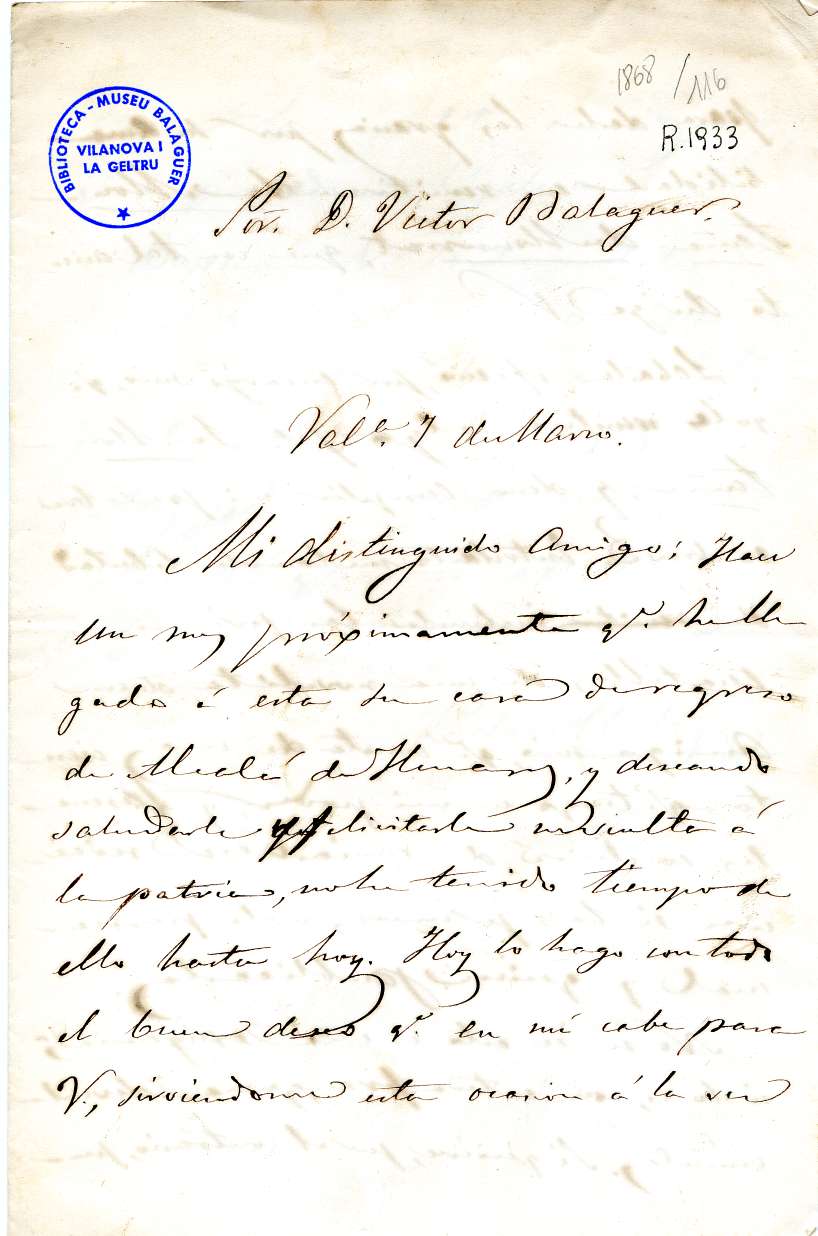 1868 / 116
R.1933
BIBLIOTECA - MUSEU BALAGUER
VILANOVA I
LA GELTRU
Sor. D. Victor Balaguer.
Vala. 7 de Marzo.
Mi distinguido Amigo: Hace
un mes próximamente qe. he lle
gado á esta su casa de regreso
de Alcalá de Henares, y deseando
saludarle y felicitarle su vuelta á
la patria, no he tenido tiempo de
ello hasta hoy. Hoy lo hago con todo
el buen deseo qe. en mí cabe para
V., sirviendome esta ocasion á la vez